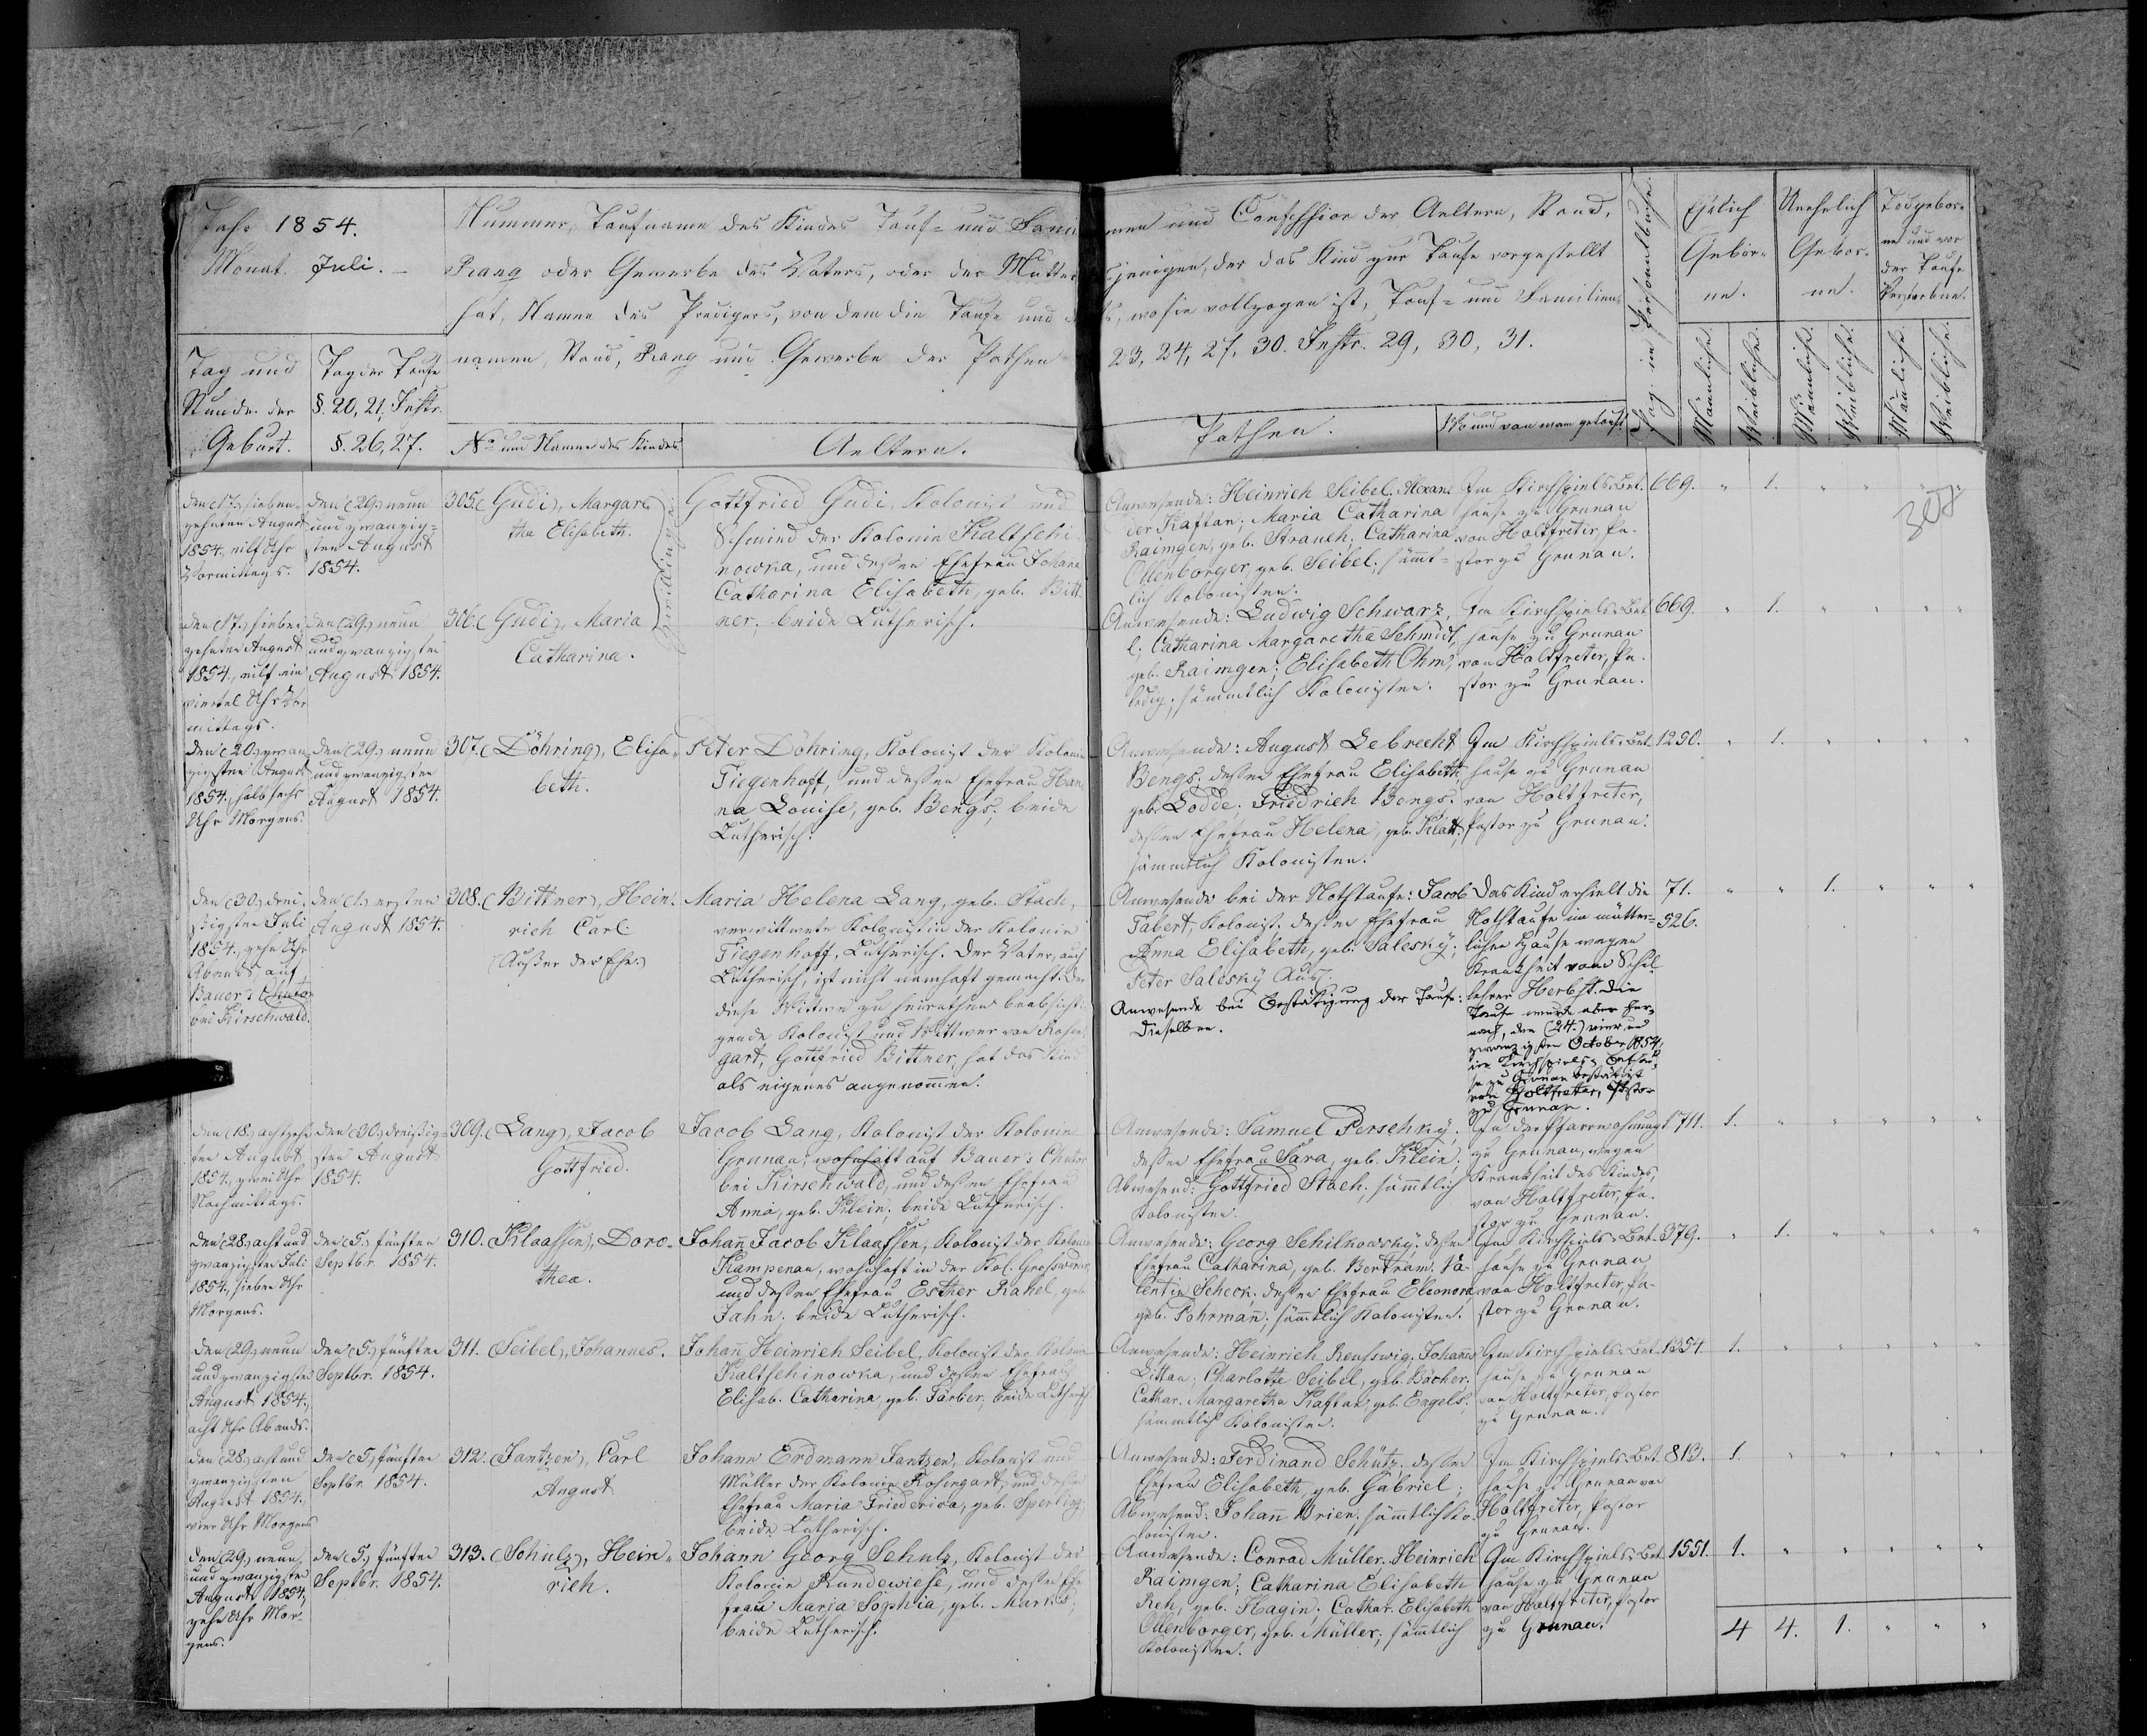 Jahr 1854.
Monat. Juli. –
Nummer, Taufname des Kindes Tauf- und Fami
Rang oder Gewerbe des Vaters, oder der Mutter
hat, Namen des Predigers, von dem die Taufe und
namen, Stand, Rang und Gewerbe der Pathen
Tag und
Stunde der
Geburt.
Tag der Taufe
§. 20, 21, Instr.
§. 26, 27.
No und Namen des Kindes
Aeltern.
men und Confession der Aeltern, Stand,
jenigen, der das Kind zur Taufe vorgestellt
wo sie vollzogen ist, Tauf- und Familien
23, 24, 27, 30. Instr. 29, 30, 31.
Pathen.
Wo und von wem getauft
Pag. im Personalbuche.
Ehelich
Gebor-
ne.
Unehelich
Gebor-
ne.
Todgebor-
ne und vor
der Taufe
Verstorbne.
Mänliche.
Weibliche.
Mänliche.
Weibliche.
Mänliche.
Weibliche.
den (17.) sieben-
zehnten August
1854., eilf Uhr
Vormittags.
den (29.) neun
und zwanzig-
sten August
1854.
305. (Gudi), Margare
tha Elisabeth.
Zwillinge
Gottfried Gudi, Kolonist und
Schmied der Kolonie Kaltschi-
nowka, und dessen Ehefrau Johana
Catharina Elisabeth, geb. Bitt-
ner; beide Lutherisch.
Anwesende: Heinrich Seibel. Alexan-
der Kaftan; Maria Catharina
Raimgen, geb. Strauch; Catharina
Ollenborger, geb. Seibel; sämmt-
lich Kolonisten.
Im Kirchspiels-Bet-
hause zu Grunau
von Holtfreter, Pa-
stor zu Grunau.
669. " 1. " " " "
den (17.) sieben-
zehnten August
1854., eilf ein
viertel Uhr Vor-
mittags.
den (29.) neun
und zwanzigsten
August 1854.
306. (Gudi), Maria
Catharina.
Anwesende: Ludwig Schwarz,
l; Catharina Margaretha Schmidt,
geb. Raimgen; Elisabeth Ohm,
ledig; sämmtlich Kolonisten.
Im Kirchspiels-Bet-
hause zu Grunau
von Holtfreter, Pa-
stor zu Grunau.
669. " 1. " " " "
den (20.) zwan-
zigsten August
1854., halb sechs
Uhr Morgens.
den (29.) neun
und zwanzigsten
August 1854.
307. (Döhring), Elisa-
beth.
Peter Döhring, Kolonist der Kolonie
Tiegenhoff, und dessen Ehefrau Han-
na Louise, geb. Bengs; beide
Lutherisch.
Anwesende: August Lebrecht
Bengs; dessen Ehefrau Elisabeth
geb. Lodde. Friedrich Bengs.
dessen Ehefrau Helena, geb. Klatt;
sämmtlich Kolonisten.
Im Kirchspiels-Bet-
hause zu Grunau
von Holtfreter,
Pastor zu Grunau.
1250. " 1. " " " "
den (30.) drei-
ßigsten Juli
1854., zehn Uhr
Abends auf
Bauer's Chutor
bei Kirschwald.
den (1.) ersten
August 1854.
308. (Bittner), Hein-
rich Carl
(Außer der Ehe.)
Maria Helena Lang, geb. Stach,
verwittwete Kolonistin der Kolonie
Tiegenhoff, Lutherisch. Der Vater, auch
Lutherisch, ist nicht namhaft gemacht. Der
diese Wittwe zu heirathen beabsichti-
gende Kolonist und Wittwer von Rosen-
gart, Gottfried Bittner, hat das Kind
als eigenes angenommen.
Anwesende bei der Nothtaufe: Jacob
Tabert, Kolonist; dessen Ehefrau
Anna Elisabeth, geb. Salesky;
Peter Salesky
Anwesende bei Bestätigung der Taufe:
Dieselben.
Das Kind erhielt die
Nothtaufe im mütter-
lichen Hause wegen
Krankheit vom Schul-
lehrer Herbst. Die
Taufe wurde aber her-
nach, den (24.) vier und
zwanzigsten October 1854,
im Kirchspiels-Bethau-
se zu Grunau bestätigt
von Holtfreter, Pastor
zu Grunau.
71.
526.
" " 1. " " "
den (18.) achtzehn-
ten August
1854., zwei Uhr
Nachmittags.
den (30.) dreißig-
sten August
1854.
309. (Lang), Jacob
Gottfried.
Jacob Lang, Kolonist der Kolonie
Grunau, wohnhaft auf Bauer's Chutor
bei Kirschwald, und dessen Ehefrau
Anna, geb. Klein; beide Lutherisch.
Anwesende: Samuel Perschky;
dessen Ehefrau Sara, geb. Klein;
Abwesend: Gottfried Stach; sämmtlich
Kolonisten.
In der Pfarrwohnung
zu Grunau, wegen
Krankheit des Kindes,
von Holtfreter, Pa-
stor zu Grunau.
1711. 1. " " " " "
den (28.) acht und
zwanzigsten Juli
1854., sieben Uhr
Morgens.
den (5.) fünften
Septbr. 1854.
310. (Klaassen), Doro-
thea.
Johann Jacob Klaassen, Kolonist der Kolonie
Kampenau, wohnhaft in der Kol. Grosswerder,
und dessen Ehefrau Esther Rahel, geb.
Jahn; beide Lutherisch.
Anwesende: Georg Schilkowsky; dessen
Ehefrau Catharina, geb. Bertram. Va-
lentin Scheck; dessen Ehefrau Eleonora
geb. Fohrmann; sämmtlich Kolonisten.
Im Kirchspiels-Bet-
hause zu Grunau
von Holtfreter, Pa-
stor zu Grunau.
379. " 1. " " " "
den (29.) neun
und zwanzigsten
August 1854.,
acht Uhr Abends.
den (5.) fünften
Septbr. 1854.
311. (Seibel), Johannes.
Johann Heinrich Seibel, Kolonist der Kolonie
Kaltschinowka, und dessen Ehefrau
Elisab. Catharina, geb. Färber; beide Lutherisch
Anwesende: Heinrich Renswig. Johannes
Littau; Charlotte Seibel, geb. Bücher.
Cathar. Margaretha Kaftan, geb. Engels;
sämmtlich Kolonisten.
Im Kirchspiels-Bet-
hause zu Grunau
von Holtfreter, Pastor
zu Grunau.
1354 1. " " " " "
den (28.) acht und
zwanzigsten
August 1854.,
vier Uhr Morgens
den (5.) fünften
Septbr. 1854.
312. (Jantzen), Carl
August
Johann Erdmann Jantzen, Kolonist und
Müller der Kolonie Rosengart, und dessen
Ehefrau Maria Friederica, geb. Sperling;
beide Lutherisch.
Anwesende: Ferdinand Schütz. dessen
Ehefrau Elisabeth, geb. Gabriel;
Abwesend: Johann Wrien; sämmtlich Ko-
lonisten.
Im Kirchspiels-Bet-
hause zu Grunau von
Holtfreter, Pastor
zu Grunau.
813. 1. " " " " "
den (29.) neun
und zwanzigsten
August 1854.,
zehn Uhr Mor-
gens.
den (5.) fünften
Septbr. 1854.
313. (Schulz), Hein-
rich.
Johann Georg Schulz, Kolonist der
Kolonie Rundewiese, und dessen Ehe-
frau Maria Sophia, geb. Marks;
beide Lutherisch.
Anwesende: Conrad Müller. Heinrich
Raimgen; Catharina Elisabeth
Reh, geb. Hagin; Cathar. Elisabeth
Ollenborger, geb. Müller; sämmtlich
Kolonisten.
Im Kirchspiels-Bet-
hause zu Grunau
von Holtfreter, Pastor
zu Grunau.
1551. 1. " " " " "
4 4. 1. " " "